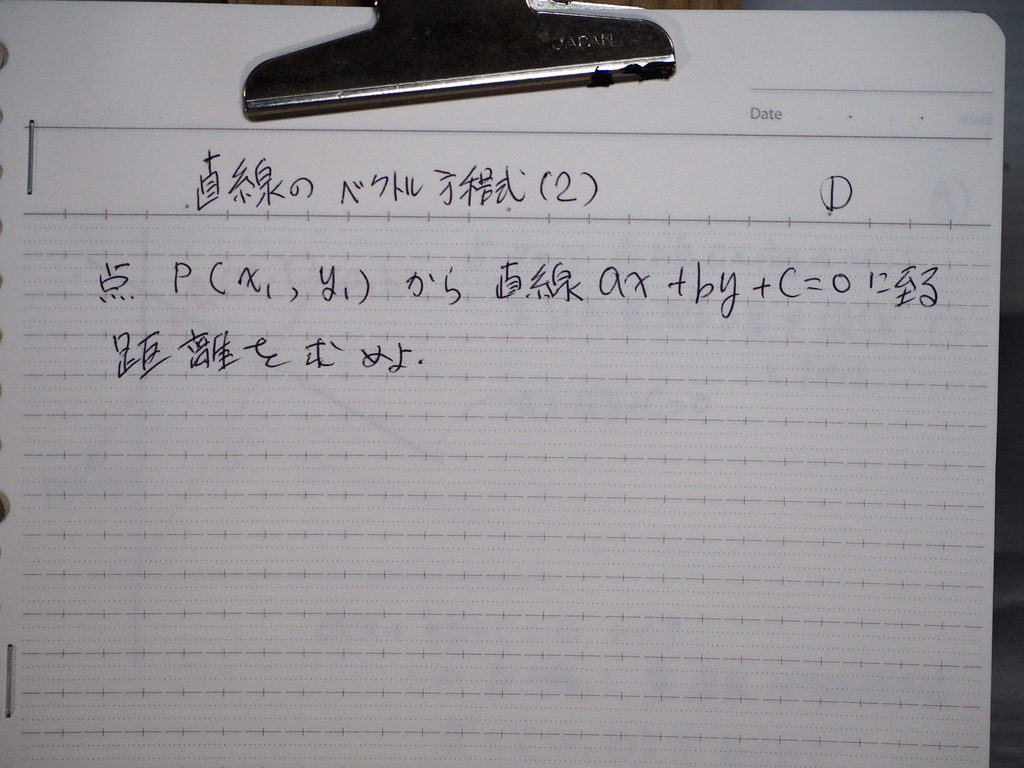 JAPAN
Date
直線の ベクトル方程式(2) ①
点 P(x₁, y₁) から 直線 ax+by+c=0 に至る
距離を求めよ.